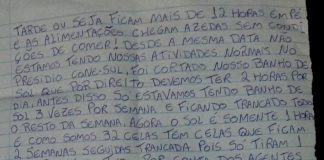 TARDE OU SEJA FICAM MAIS DE 12 HORAS EM PÉ
E AS ALIMENTAÇÕES CHEGAM AZEDAS SEM CONDI
ÇOES DE COMER! DESDE A MESMA DATA NÃO
ESTAMOS TENDO NOSSAS ATIVIDADES NORMAIS NO
PRESIDIO CONE-SUL, FOI CORTADO NOSSO BANHO DE
SOL QUE POR DIREITO DEVEMOS TER 2 HORAS POR
DIA, ANTES DISSO SO ESTAVAMOS TENDO BANHO DE
SOL 3 VEZES POR SEMANA E FICANDO TRANCADO TODO
O RESTO DA SEMANA. AGORA O SOL É SOMENTE 1 HORA
E COMO SOMOS 32 CELAS TEM CELAS QUE FICAM
2 SEMANAS SEGUIDAS TRANCADA. POIS SÓ TIRAM 1
POR CONTA DOS AGENTES